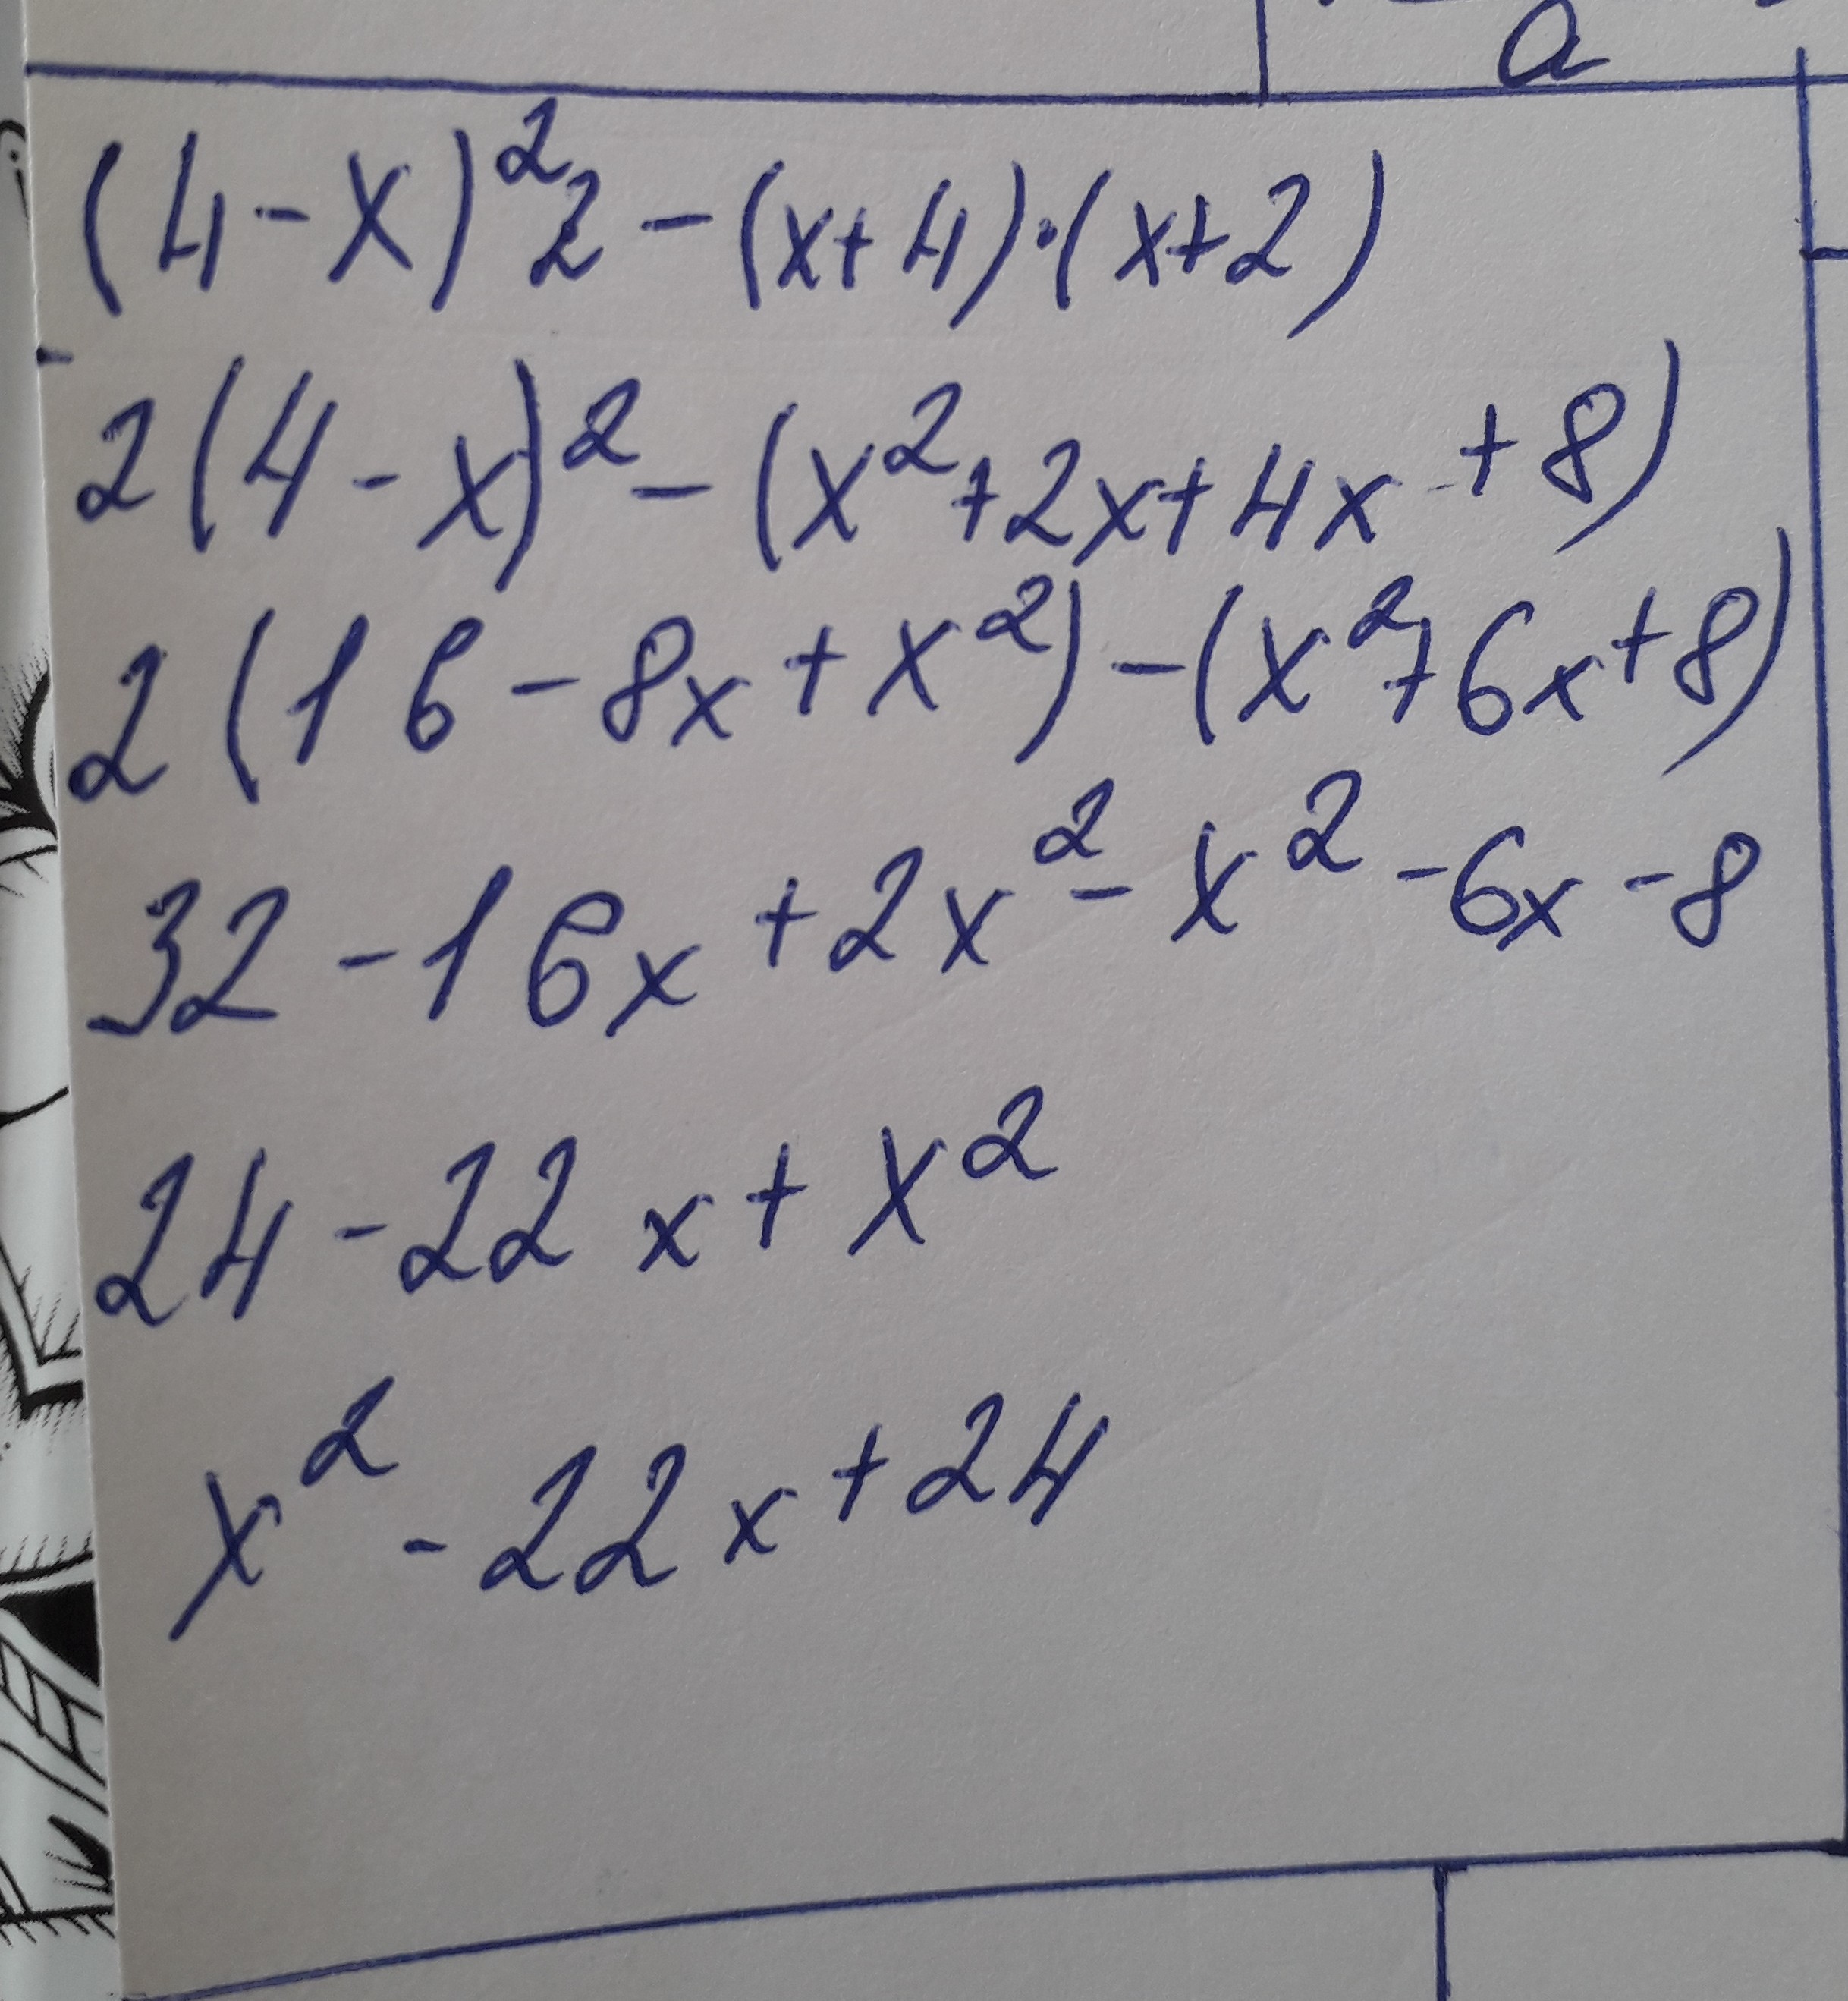 a
(4-x)²2-(x+4)·(x+2)
2(4-x)²-(x²+2x+4x+8)
2(16-8x+x²)-(x²+6x+8)
32-16x+2x²-x²-6x-8
24-22x+x²
x²-22x+24